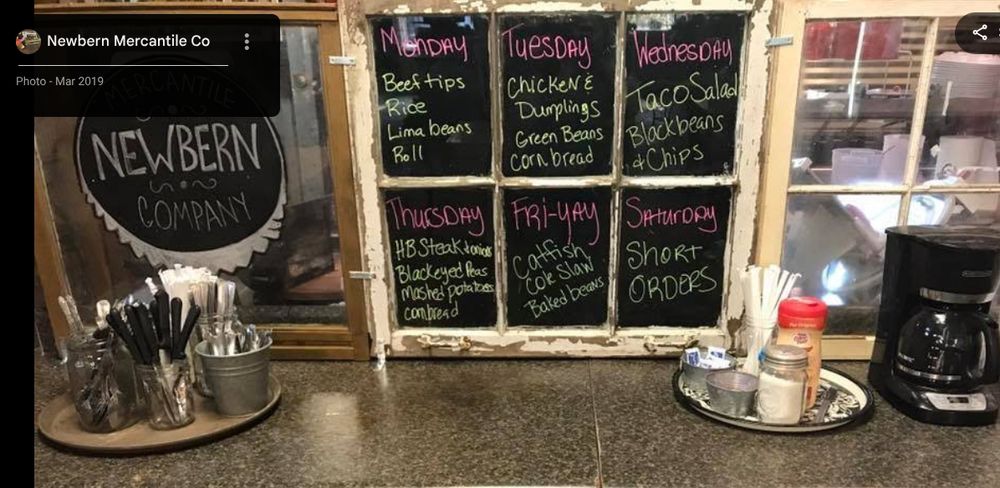 Newbern Mercantile Co
Photo - Mar 2019
MERCANTILE
NEWBERN
COMPANY
MONDAY
Beef tips
Rice
Lima beans
Roll
TUESDAY
CHICKEN &
Dumplings
Green Beans
Cornbread
WEDNESDAY
Taco Salad
Blackbeans
& Chips
THURSDAY
HB Steak & onions
Blackeyed Peas
Mashed potatoes
cornbread
FRI-YAY
Catfish
Cole Slaw
Baked beans
SATURDAY
SHORT
ORDERS